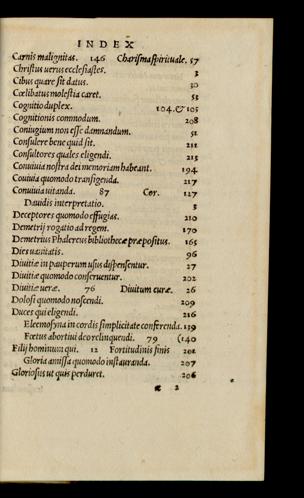 INDEX
Carnis malignitas. 146 Charisma spirituale. 57
Christus uerus ecclesiastes. 3
Cibus quare sit datus. 30
Cœlibatus molestia caret. 53
Cognitio duplex. 104.& 105
Cognitionis commodum. 208
Coniugium non esse damnandum. 51
Consulere bene quid sit. 212
Consultores quales eligendi. 215
Conuiuia nostra dei memoriam habeant. 194
Couiuia quomodo transigenda. 217
Conuiuia uitanda. 87 Cor. 127
Dauidis interpretatio. 5
Deceptores quomodo effugias. 210
Demetrij rogatio ad regem. 170
Demetrius Phalereus bibliothecæ præpositus. 165
Dies uanitatis. 96
Diuitiæ in pauperum usus dispensentur. 27
Diuitiæ quomodo conseruentur. 202
Diuitiæ ueræ. 76 Diuitum curæ. 26
Dolosi quomodo noscendi. 209
Duces qui eligendi. 216
Eleemosyna in cordis simplicitate conferenda. 139
Fœtus abortiui deo relinquendi. 79 (140
Filij hominum qui. 12 Fortitudinis finis 202
Gloria amissa quomodo instauranda. 207
Gloriosus ut quis perduret. 206
2